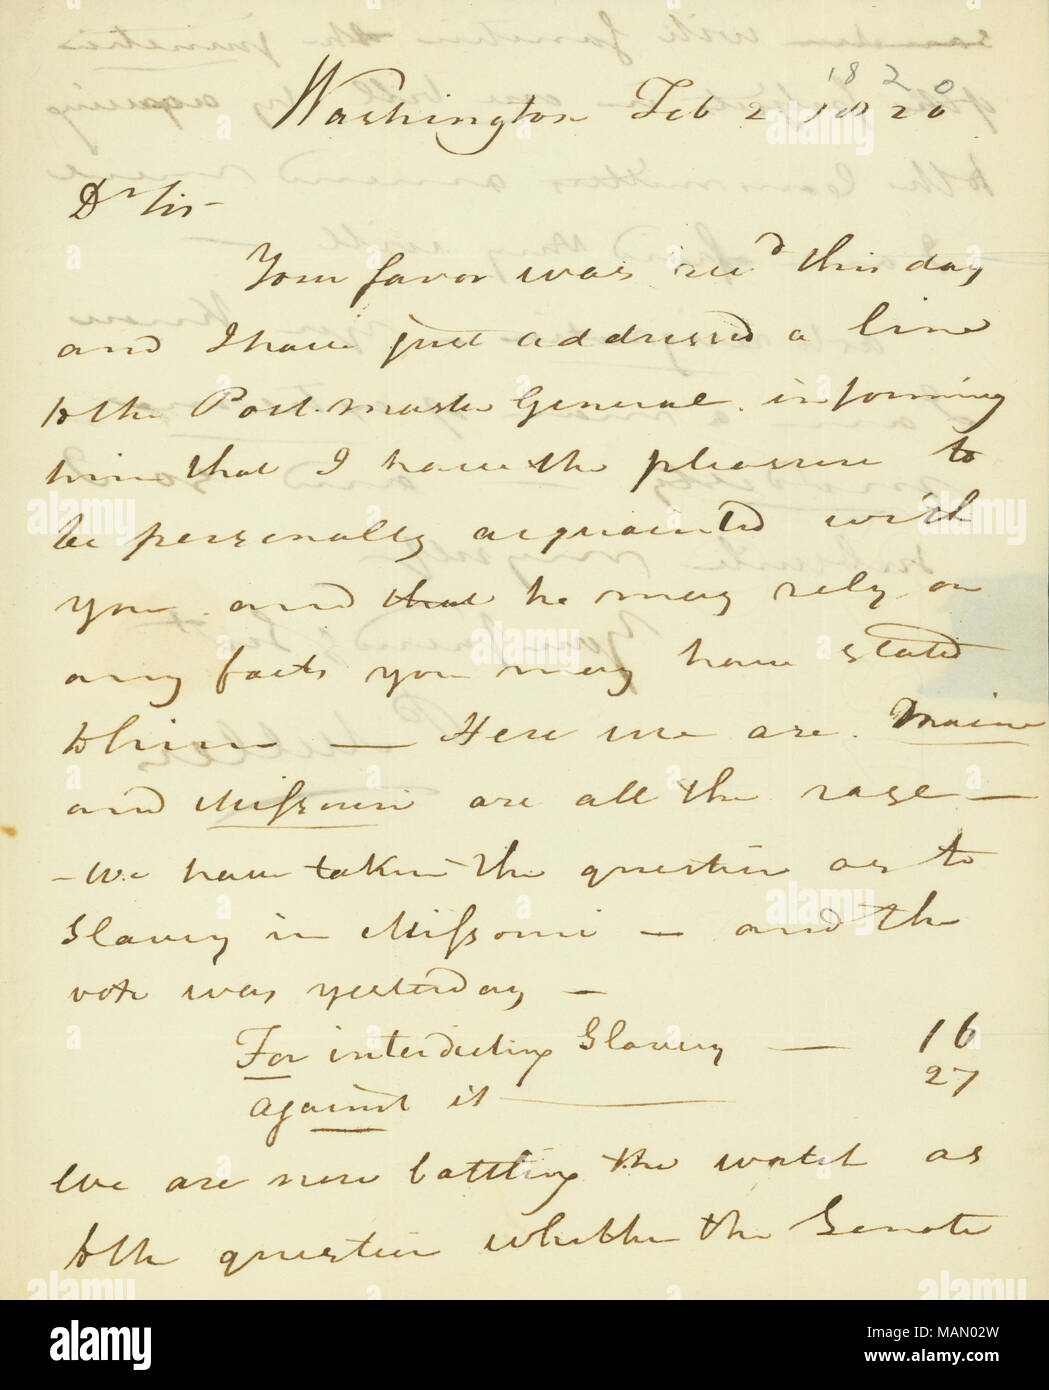 1820
Washington Feb 2. 1820
Dr Sir -
Your favor was recd this day
and I have just addressed a line
to the Post. Master General. informing
him that I have the pleasure to
be personally acquainted with
you. and that he may rely on
any facts you may have stated
to him — Here we are. Maine
and Missouri are all the rage —
- We have taken the question as to
Slavery in Missouri — and the
vote was yesterday —
For interdicting Slavery — 16
against it — 27
We are now battling the watch as
to the question whether the Senate
alamy
Image ID: MAN02W
www.alamy.com